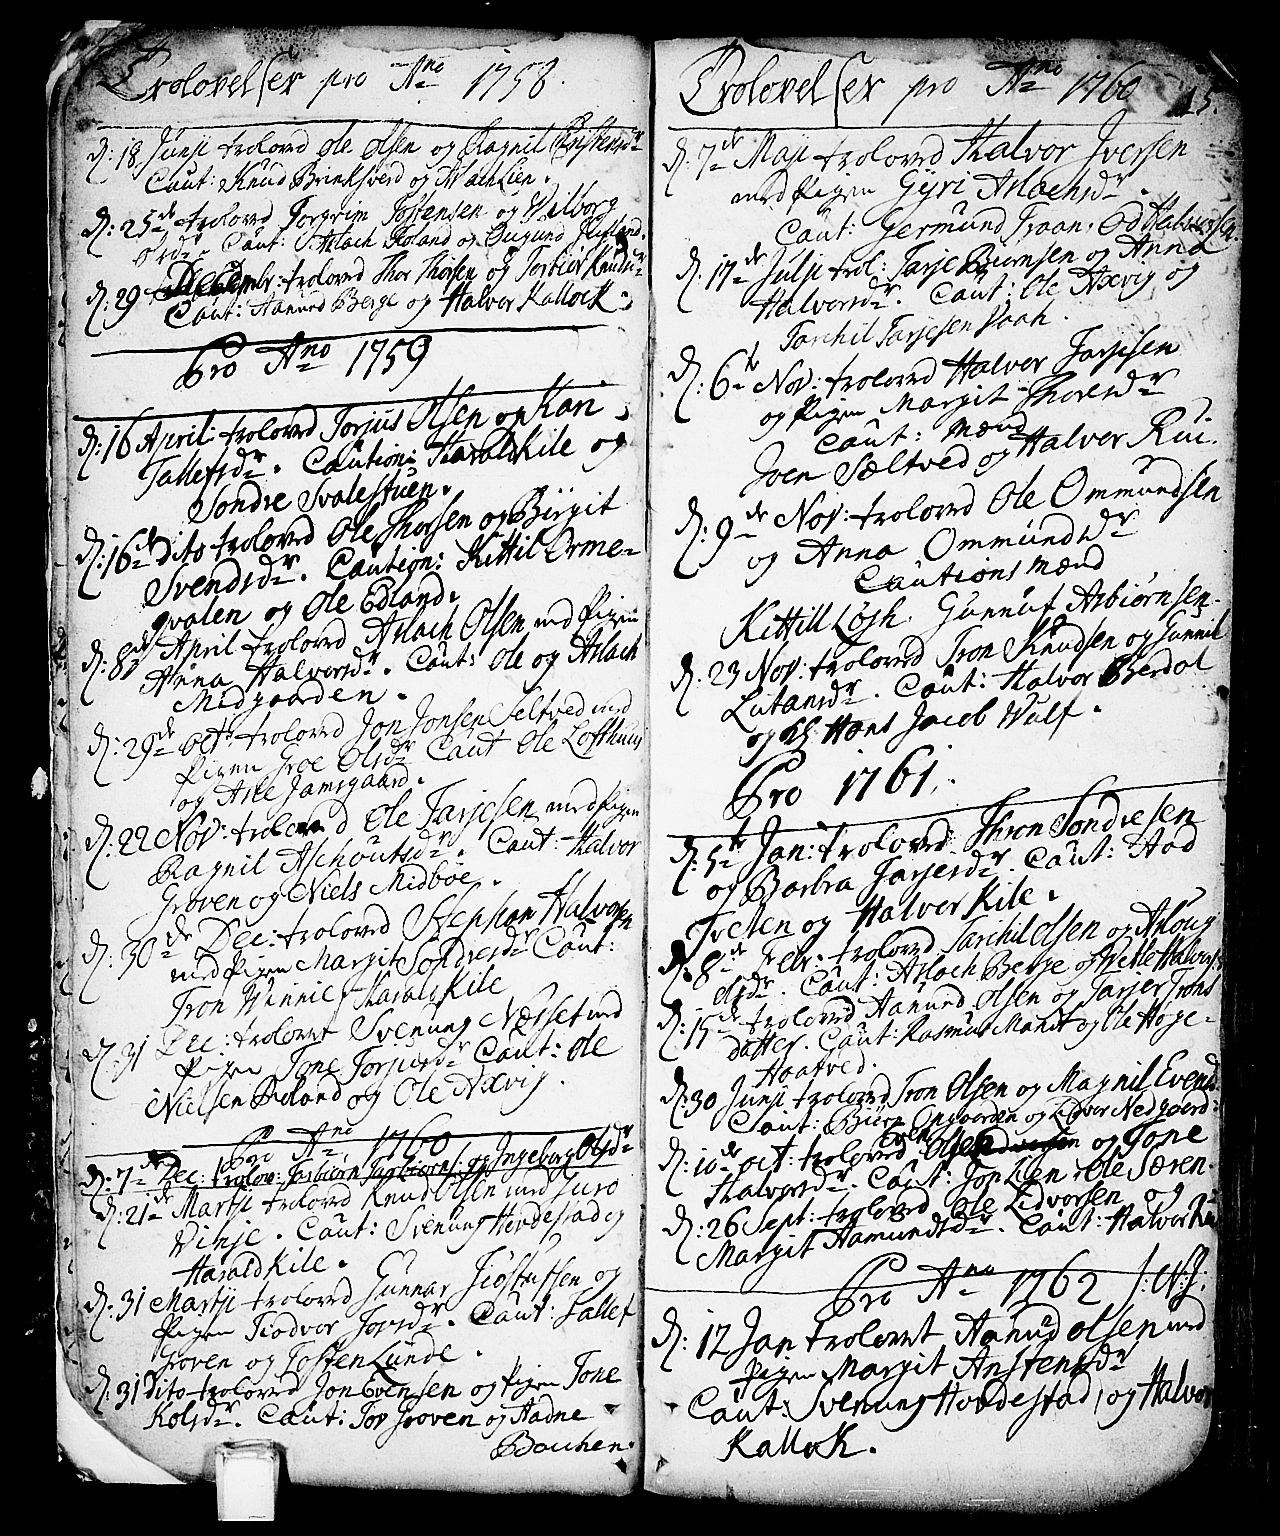 Trolovelser pro Ano 1758.
D: 18. Junji trolovd Ole Olsen og Ragnil Christensdr
Caut: Knud Brinksverd og Aslach Lien.
D: 25de trolovd Torgrim Tostensen og Vilborg
Olsdr Caut: Aslach Roland og
D: 29 Decembr: trolovd Thor Thorsen og Torbiør Knudsdr
Caut: Aanund Berge og Halvor Kallock.
Pro Ano 1759
D: 16 April: trolovd Torjus Olsen og Kari
Tallefsdr. Caution: Harald Kile og
Sondre Svalestuen.
D: 16de dito trolovd Ole Thorsen og Birgit
Svendsdr. Caution: Kittil Orme-
gvalen og Ole Edland.
D: 8de April trolovd Aslach Olsen med Pigen
Anna Halvorsdr. Caut: Ole og Aslach
Midgaarden.
D: 29de Octr: trolovd Jon Jonsen Seltved med
Pigen Groe Olsdr Caut Ole Lofthuus
og Asle Jamsgaard.
D: 22 Nov: trolovd Ole Tarjesen med Pigen
Ragnil Aschoutsdr. Caut: Halvor
Groven og Niels Midbøe.
D: 30de Dec: trolovd Stephan Halvorsen
med Pigen Margit Sondresdr Caut:
Tron Vinnie, Harald Kile
D: 31 Dec: trolovt Svenung Næsset med
Pigen Tone Torjusdr Caut: Ole
Nielsen Roland og Ole Axvig.
Pro Ano 1760
D: 7de Dec: trolov: Torbiørn Torbiørns: og Ingeborg Olsdr
D: 21de Martji trolovd Knud Olsen med Juro
Vinje. Caut: Svenung Hovdestad og
Harald Kile.
D: 31 Martji trolovd Gunnar Tiostufsen og
Pigen Tiodvor Torsdr. Caut: Tallef
Groven og Tosten Lunde.
D: 31 Dito trolovd Jon Evensen og Pigen Tone
Kolsdr. Caut: Tov Groven og Aadne
Bauhen.
Trolovelser pro Ano 1760 15.
D: 7de Maji trolovd Halvor Iversen
med Pigen Gyri Aslachsdr.
Caut: Germund Traan. Od Halvorsen.
D: 17de Julji trol: Tarje Biørnsen og Anna
Halvorsdr. Caut: Ole Axvig og
Tarchil Tarjesen Vaah.
D: 6te Nov: trolovd Halvor Tarjesen
og Pigen Margit Thoresdr
Caut: Mænd
Joen Sæltved og Halver Rui.
D: 9de Nov: trolovd Ole Ommundsen
og Anna Ommundsdr
Cautions Mænd
Kittill Løjh. Gunnuf Asbiørnsen.
D: 23 Nov: trolovd Tron Knudsen og Gunnil
Lutansdr. Caut: Halvor Berdal
og Hans Jacob Wulf.
Pro 1761.
D: 5te Jan: trolovd Thron Sondresen
og Barbra Tarjesdr. Caut: Aad
Tveten og Halver Kile.
D: 8de Febr. trolovd Tarchil Olsen og Aslaug
Olsdr. Caut: Aslach Berge og Vetle Halvors:
D: 15de trolovd Aanund Olsen og Tarjer Trons
datter. Caut: Rasmus Mandt og Ole Hoge-
Haatved.
D: 30 Junji trolovd Tron Olsen og Magnil Evensd
Caut: Biørn og Lidver Nedgaard:
D: 10de oct: trolovd Even Olsen og Tone
Halvorsdr. Caut: Jon Lien. Ole Særen.
D: 26 Sept: trolovd Ole Lidvorsen og
Margit Aamundsdr. Caut: Halver Rui
Pro Ano 1762 S: N: J:
D: 12 Jan trolovt Aanud Olsen med
Pigen Margit Anstensdr
Caut: Svenung Hovdestad, og Halvor
Kallok.